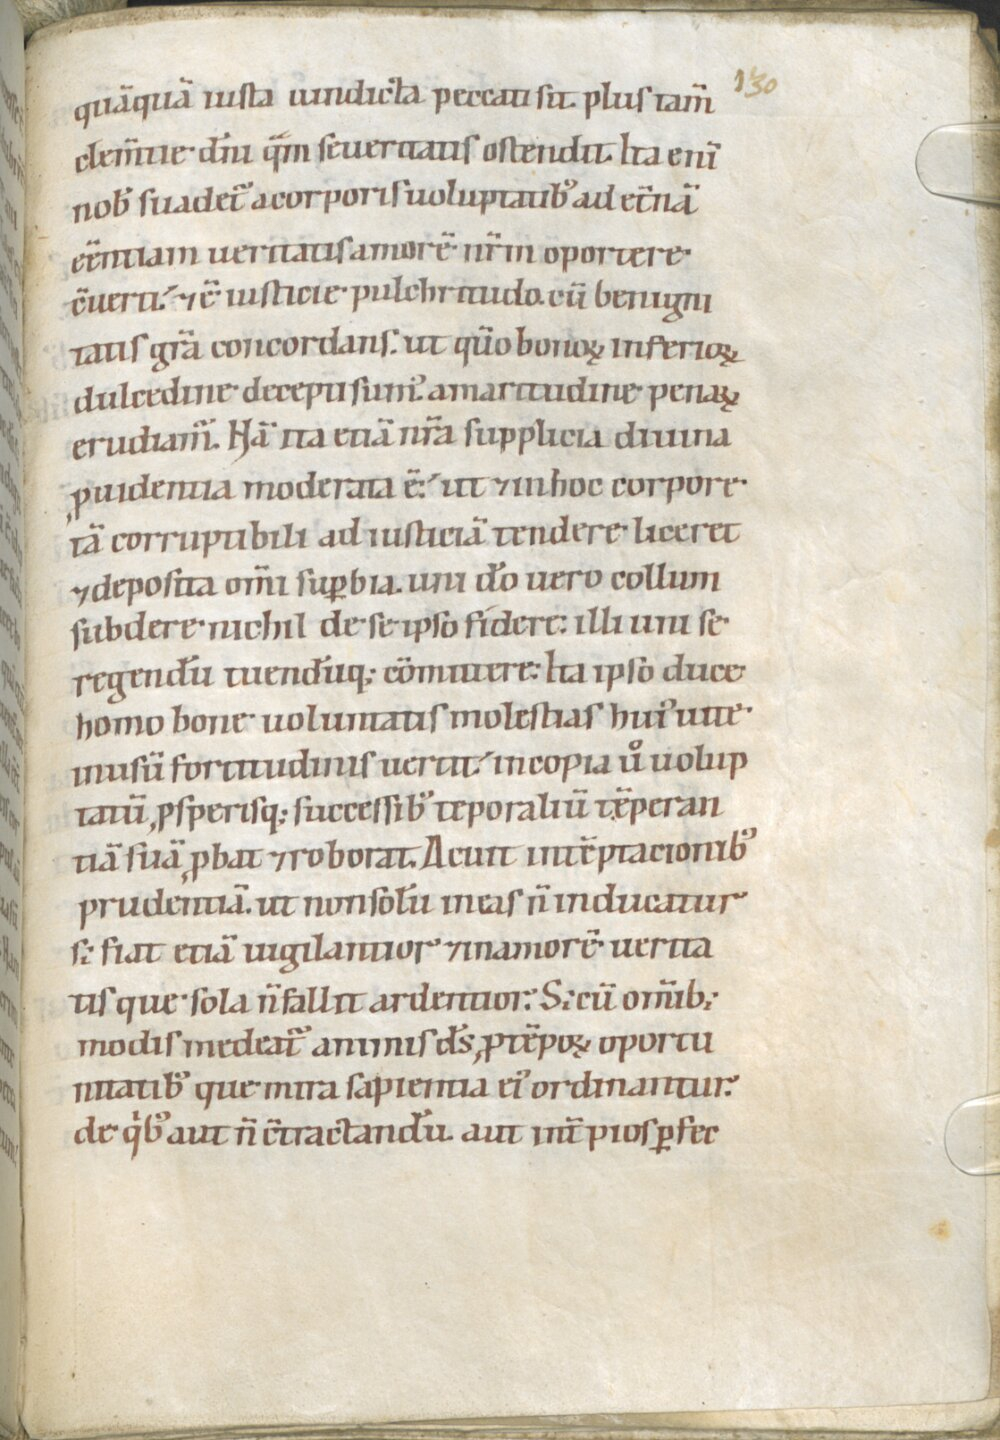 quāquā iusta uindicta peccati sit. plus tam̄ 130
clem̄tie dn̄i q̄m seueritatis ostendit. Ita eni
nob᾽ suadet᷑ a corporis uoluptatib᾽ ad et̄nā
eēntiam ueritatis amorē nr̄m oportere
ēuerti. ⁊ ē iusticie pulchritudo. cū benigni
tatis gr̄a concordans. ut qūo bonoꝝ inferioꝝ
dulcedine decepti sum᾽. amaritudine penaꝝ
erudiam᾽. Nā ita etiā nr̄a supplicia diuina
ꝓuidentia moderata ē. ut ⁊ in hoc corpore
tā corruptibili ad iusticiā tendere liceret
⁊ deposita om̄i suꝑbia. uni dō uero collum
subdere nichil de se ipso fidere. illi uni se
regendū tuendūq; cōmittere. Ita ipso duce
homo bone uoluntatis molestias hui᾽ uite
in usū fortitudinis uertit. in copia ůo uolup
tatū ꝓsperisq; successib᾽ tēporaliū tēperan
tiā suā ꝓbat ⁊ roborat. Acuit in tēptacionib᾽
prudentiā. ut non solū in eas n̄ inducatur
s; fiat etiā uigilantior ⁊ in amorē uerita
tis que sola n̄ fallit ardentior. S; cū om̄ib;
modis medeat᷑ animis ds̄ ꝓ tēpoꝝ oportu
nitatib᾽ que mira sapientia ei᾽ ordinantur.
de qⁱb᾽ aut n̄ ētractandū. aut int̄ pios ꝑfec